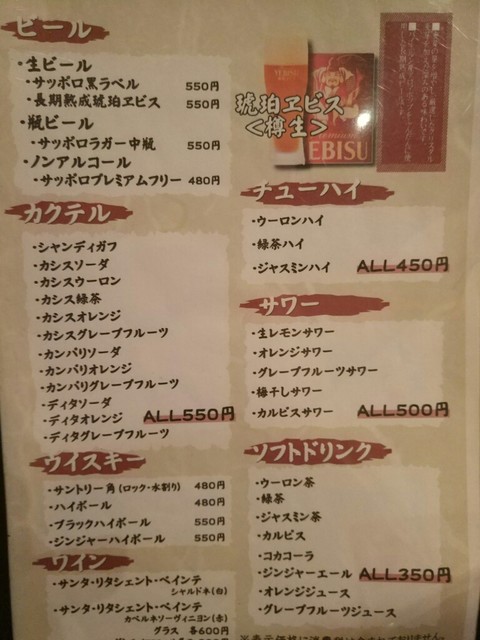 ビール
・生ビール
・サッポロ黒ラベル 550円
・長期熟成琥珀ヱビス 550円
・瓶ビール
・サッポロラガー中瓶 550円
・ノンアルコール
・サッポロプレミアムフリー 480円
琥珀ヱビス
<樽生>
EBISU
カクテル
・シャンディガフ
・カシスソーダ
・カシスウーロン
・カシス緑茶
・カシスオレンジ
・カシスグレープフルーツ
・カンパリソーダ
・カンパリオレンジ
・カンパリグレープフルーツ
・ディタソーダ
・ディタオレンジ ALL550円
・ディタグレープフルーツ
ウイスキー
・サントリー角(ロック・水割り) 480円
・ハイボール 480円
・ブラックハイボール 550円
・ジンジャーハイボール 550円
ワイン
・サンタ・リタシェント・ベインテ
シャルドネ(白)
・サンタ・リタシェント・ベインテ
カベルネソーヴィニヨン(赤)
グラス 各600円
チューハイ
・ウーロンハイ
・緑茶ハイ
・ジャスミンハイ ALL450円
サワー
・生レモンサワー
・オレンジサワー
・グレープフルーツサワー
・梅干しサワー
・カルピスサワー ALL500円
ソフトドリンク
・ウーロン茶
・緑茶
・ジャスミン茶
・カルピス
・コカコーラ
・ジンジャーエール ALL350円
・オレンジジュース
・グレープフルーツジュース